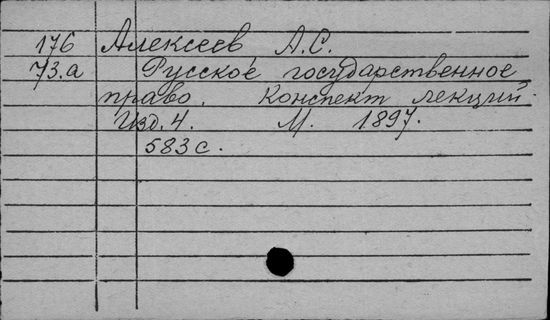 176 Алексеев А.С.
73.а Русское государственное
право. Конспект лекций.
Изд. 4. М. 1897.
583 с.